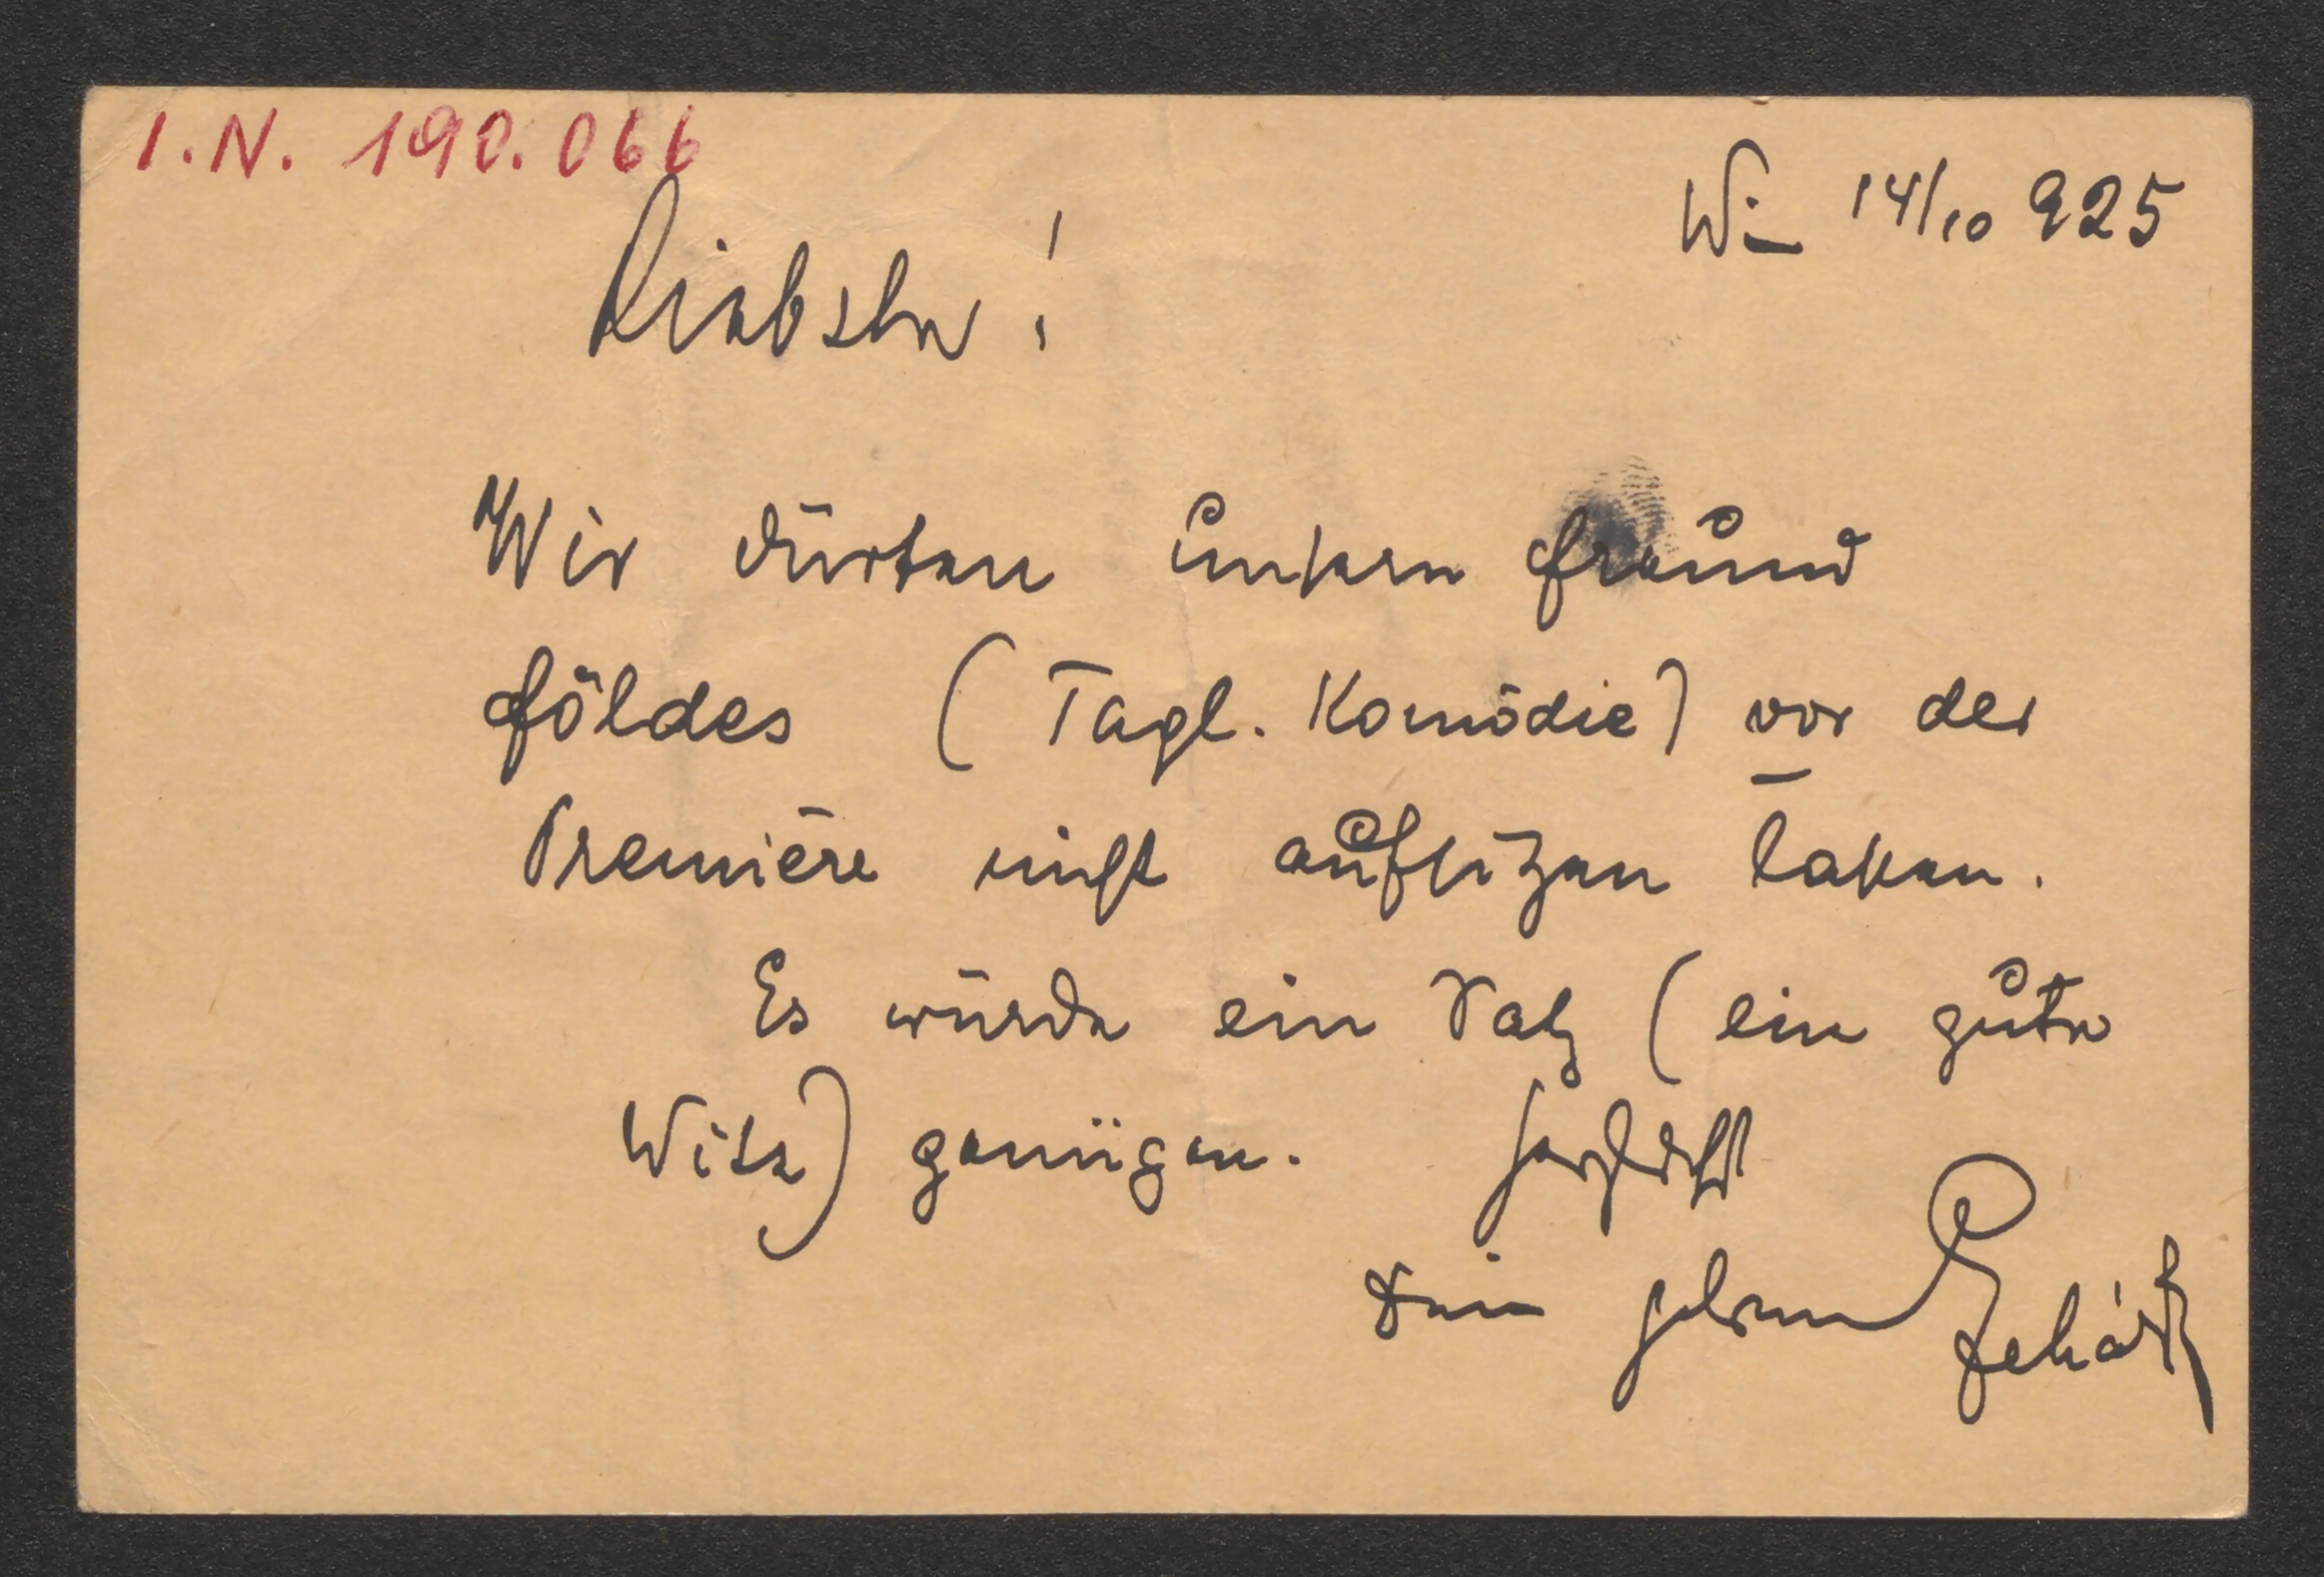 I.N. 190.066
Wien 14/10 925
Liebster!
Wir dürfen unsern Freund
Földes (Tagl. Komödie) vor der
Première nicht aufsitzen lassen.
Es würde ein Satz (ein guter
Witz) genügen. Herzlichst
Dein Lehár